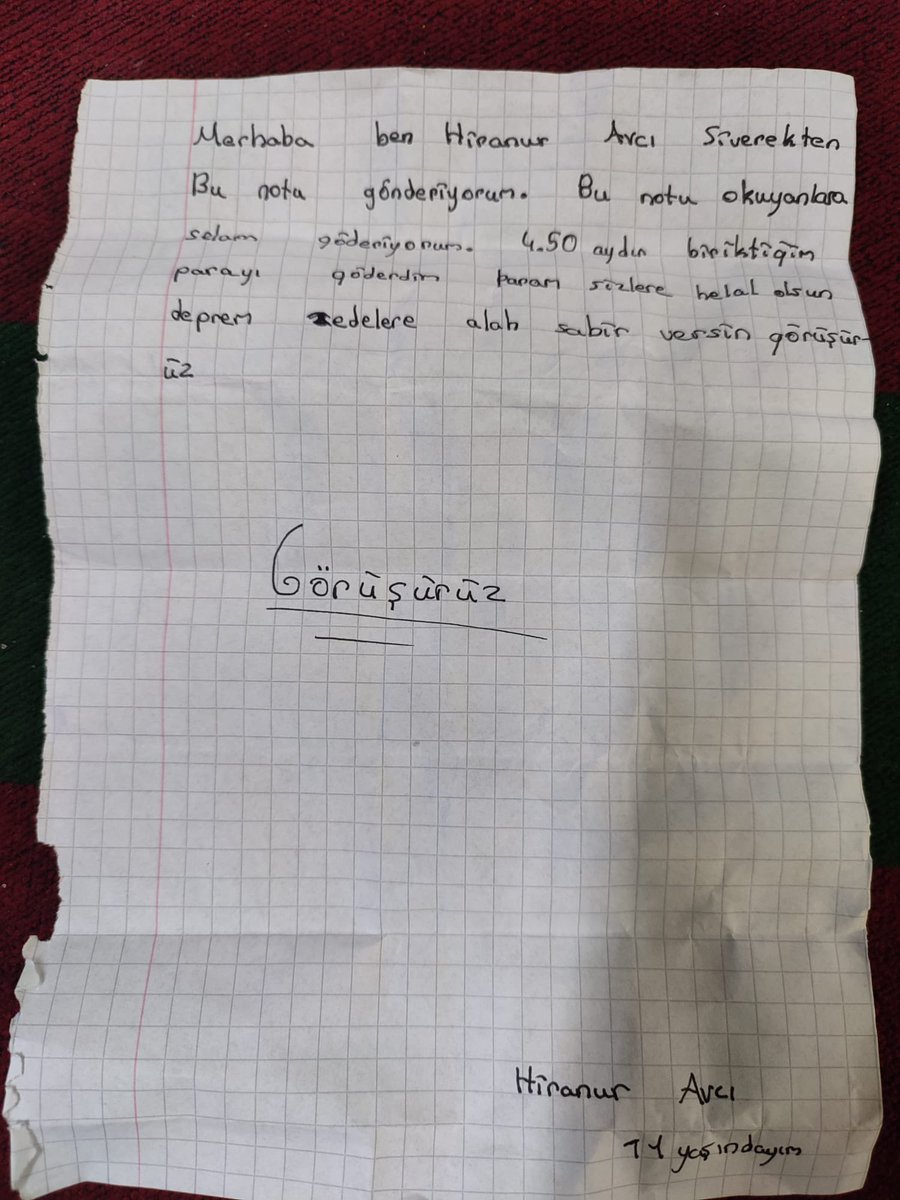 Merhaba ben Hiranur Avcı Siverekten
Bu notu gönderiyorum. Bu notu okuyanlara
selam göderiyorum. 4.50 aydın biriktiğim
parayı göderdim param sizlere helal olsun
deprem zedelere alah sabır versin görüşür-
üz
Görüşürüz
Hiranur Avcı
11 yaşındayım